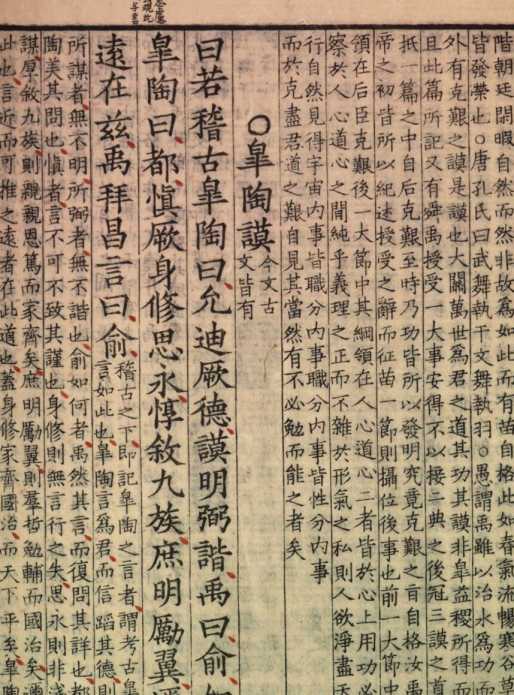 階朝廷閒暇自然而然非故爲如此而有苗自格此如春氣流暢寒谷草
皆發榮也○唐孔氏曰武舞執干文舞執羽○愚謂禹雖以治水爲功而
外有克艱之謨是謨也大關萬世爲君之道其功其謨非皋益稷所得而
且此篇所記又有舜禹授受一大事安得不以接二典之後冠三謨之首
抵一篇之中自后克艱至時乃功皆所以發明究竟克艱之旨自格汝禹
帝之初皆所以紀述授受之辭而征苗一節則攝位後事也前一大節中
領在后臣克艱後一大節中其綱領在人心道心二者皆於心上用功必
察於人心道心之間純乎義理之正而不雜於形氣之私則人欲淨盡天
行自然見得宇宙內事皆職分內事職分內事皆性分內事
而於克盡君道之艱自見其當然有不必勉而能之者矣
○皋陶謨
今文古
文皆有
曰若稽古皋陶曰允迪厥德謨明弼諧禹曰俞如
皋陶曰都慎厥身修思永惇敘九族庶明勵翼邇
遠在茲禹拜昌言曰俞
稽古之下即記皋陶之言者謂考古皋
言如此也皋陶言爲君而信蹈其德則
所謀者無不明所弼者無不諧也俞如何者禹然其言而復問其詳也都
陶美其問也慎者言不可不致其謹也身修則無言行之失思永則非淺
謀厚敘九族則親親恩篤而家齊矣庶明勵翼則羣哲勉輔而國治矣邇
此也言近而可推之遠者在此道也蓋身修家齊國治而天下平矣皋陶